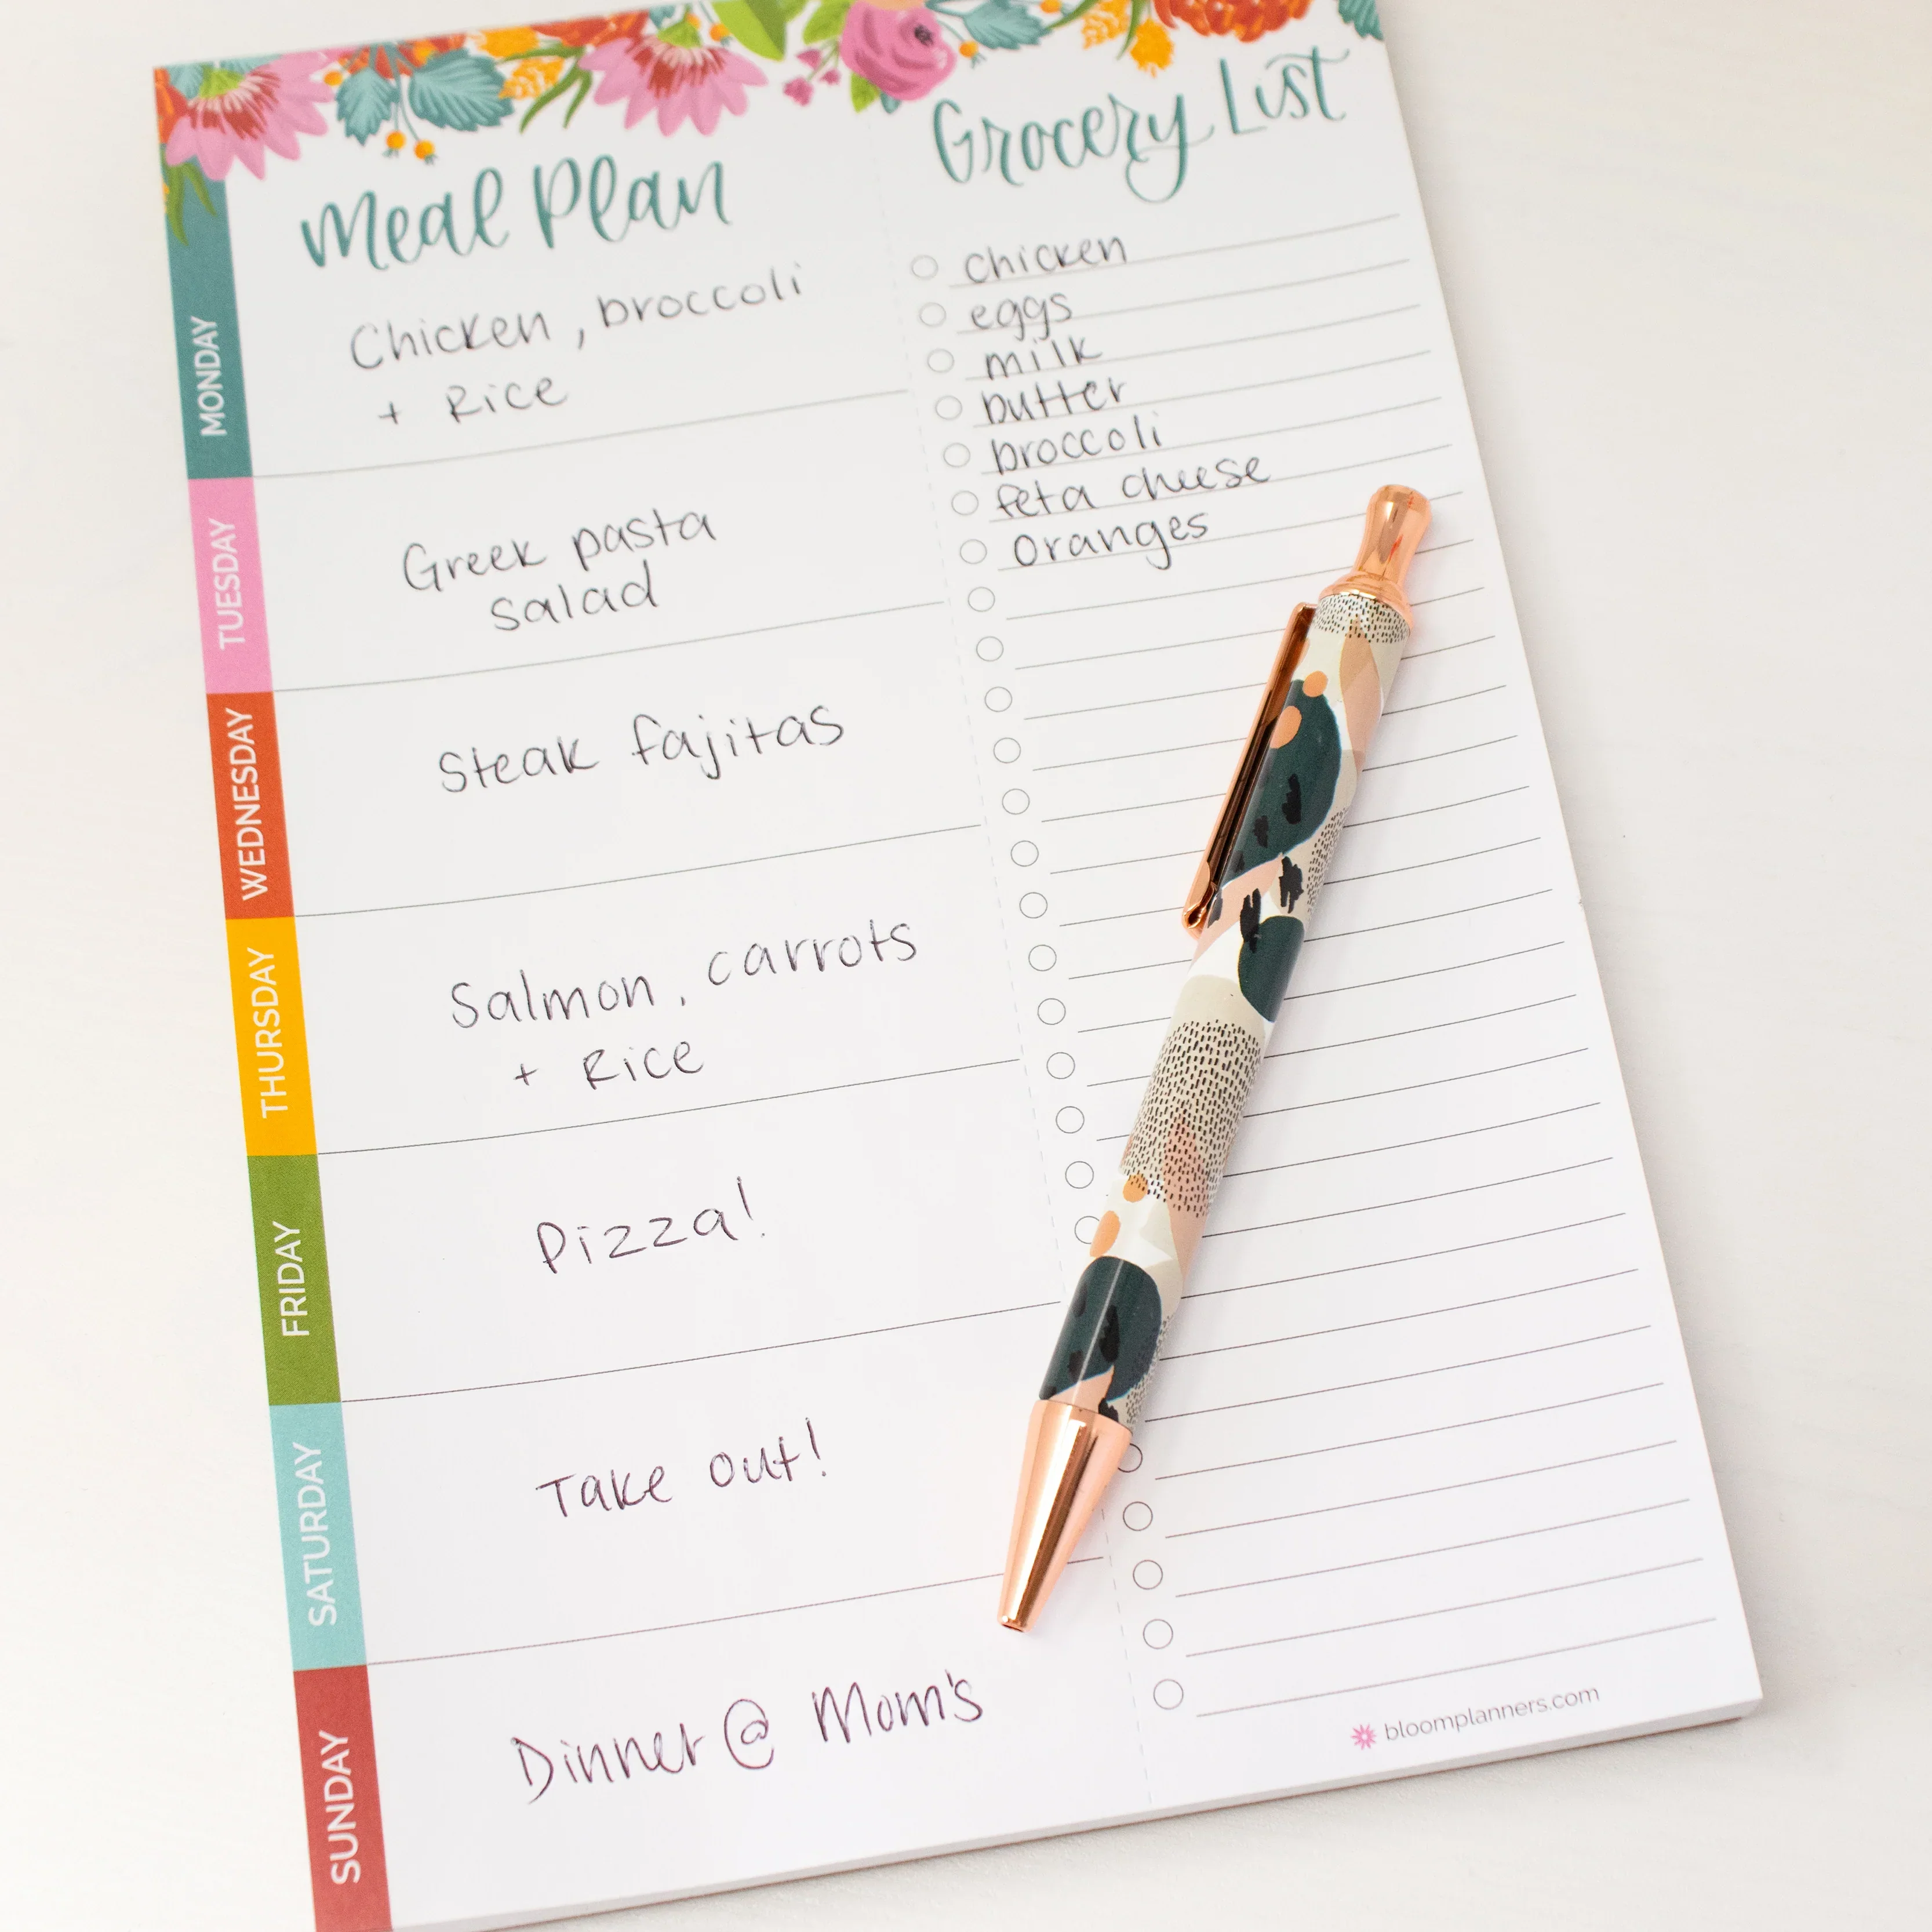 Meal Plan
MONDAY
Chicken, broccoli
+ Rice
TUESDAY
Greek pasta
salad
WEDNESDAY
Steak fajitas
THURSDAY
Salmon, carrots
+ Rice
FRIDAY
Pizza!
SATURDAY
Take out!
SUNDAY
Dinner @ Mom's
Grocery List
chicken
eggs
milk
butter
broccoli
feta cheese
oranges
bloomplanners.com